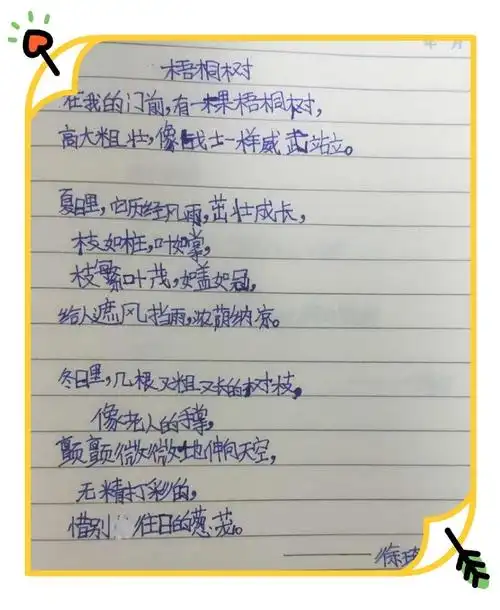 年 月
梧桐树
在我的门前,有一棵梧桐树,
高大粗壮,像战士一样威武站立。
夏日里,它历经风雨,茁壮成长,
枝如桩,叶如掌,
枝繁叶茂,如盖如冠,
给人遮风挡雨,浓荫纳凉。
冬日里,几根又粗又长的树枝,
像老人的手掌,
颤颤微微地伸向天空,
无精打彩的,
惜别往日的葱茏。
——徐